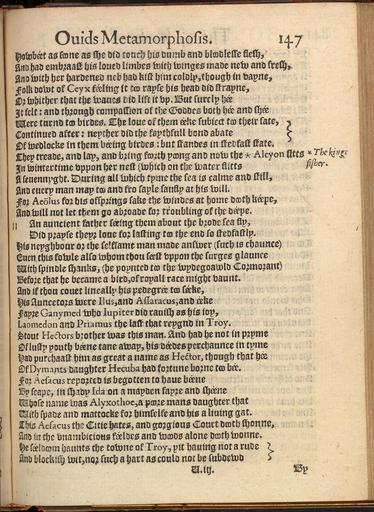 Ouids Metamorphosis. 147
Howbeit as soone as she did touch his dumb and bloodlesse flesh,
And had embraast his loued limbes with winges made new and fresh,
And with her hardened neb had kist him coldly, though in vayne,
Folk dowt of Ceyx feeling it too rayse his head did strayne,
Or whither that the waues did lift it vp. But surely hee
It felt: and through compassion of the Goddes both hee and shee
Were turnd to birdes. The loue of them eeke subiect to their fate,
Continued after: neyther did the faythfull bond abate
Of wedlocke in them beeing birdes: but standes in stedfast state.
They treade, and lay, and bring foorth yoong and now the * Alcyon sitts * The kings fisher.
In wintertime vppon her nest (which on the water flitts
A seuennyght. During all which tyme the sea is calme and still,
And euery man may too and fro sayle saufly at his will.
For Aeolus for his ofsprings sake the windes at home dooth keepe,
And will not let them go abroade for troubling of the deepe.
An auncient father seeing them about the brode sea fly,
Did prayse theyr loue for lasting to the end so stedfastly.
His neyghbour or the selfsame man made answer (such is chaunce)
Euen this fowle also whom thou seest vppon the surges glaunce
With spindle shanks, (he poynted to the wydegoawld Cormorant)
Before that he became a bird, of royall race might vaunt.
And if thou couet lineally his pedegree to seeke,
His Auncetors were Ilus, and Assaracus, and eeke
Fayre Ganymed who Iupiter did rauish as his ioy,
Laomedon and Priamus the last that reygnd in Troy.
Stout Hectors brother was this man. And had he not in pryme
Of lusty youth beene tane away, his deedes perchaunce in tyme
Had purchaast him as great a name as Hector, though that hee
Of Dymants daughter Hecuba had fortune borne to bee.
For Aesacus reported is begotten to haue beene
By scape, in shady Ida on a mayden fayre and sheene
Whose name was Alyxothoe, a poore mans daughter that
With spade and mattocke for himselfe and his a liuing gat.
This Aesacus the Citie hates, and gorgious Court dooth shonne,
And in the vnambicious feeldes and woods alone dooth wonne.
He seeldoom haunts the towne of Troy, yit hauing not a rude
And blockish wit, nor such a hart as could not be subdewd
U.iij. By